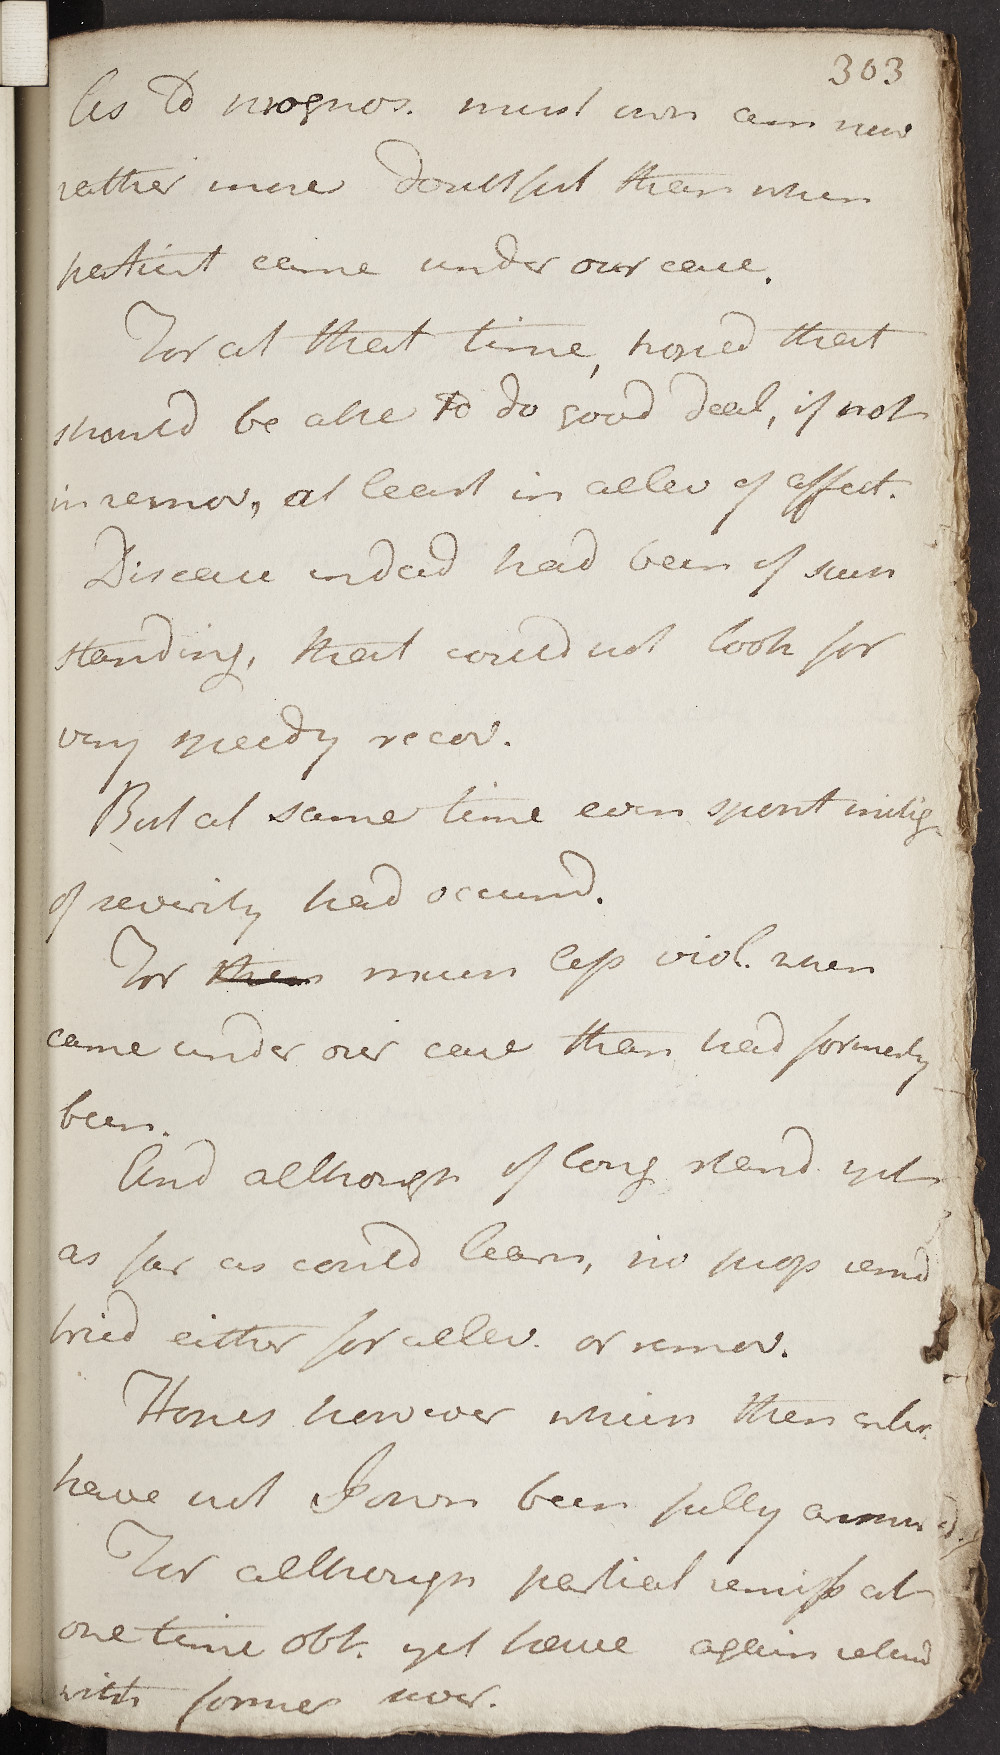 303
As to prognos. must own am now
rather more doubtful than when
patient came under our care.
For at that time, hoped that
should be able to do good deal, if not
in remov, at least in allev of affect.
Disease indeed had been of such
standing, that could not look for
very speedy recov.
But at same time even spont mitig
of severity had occurred.
For then much less viol. when
came under our care than had formerly
been.
And although of long stand. yet
as far as could learn, no prop remed
tried either for allev. or remov.
Hopes however which then enter.
have not I own been fully answ
For although partial remiss at
one time obt. yet have again return
with former sever.